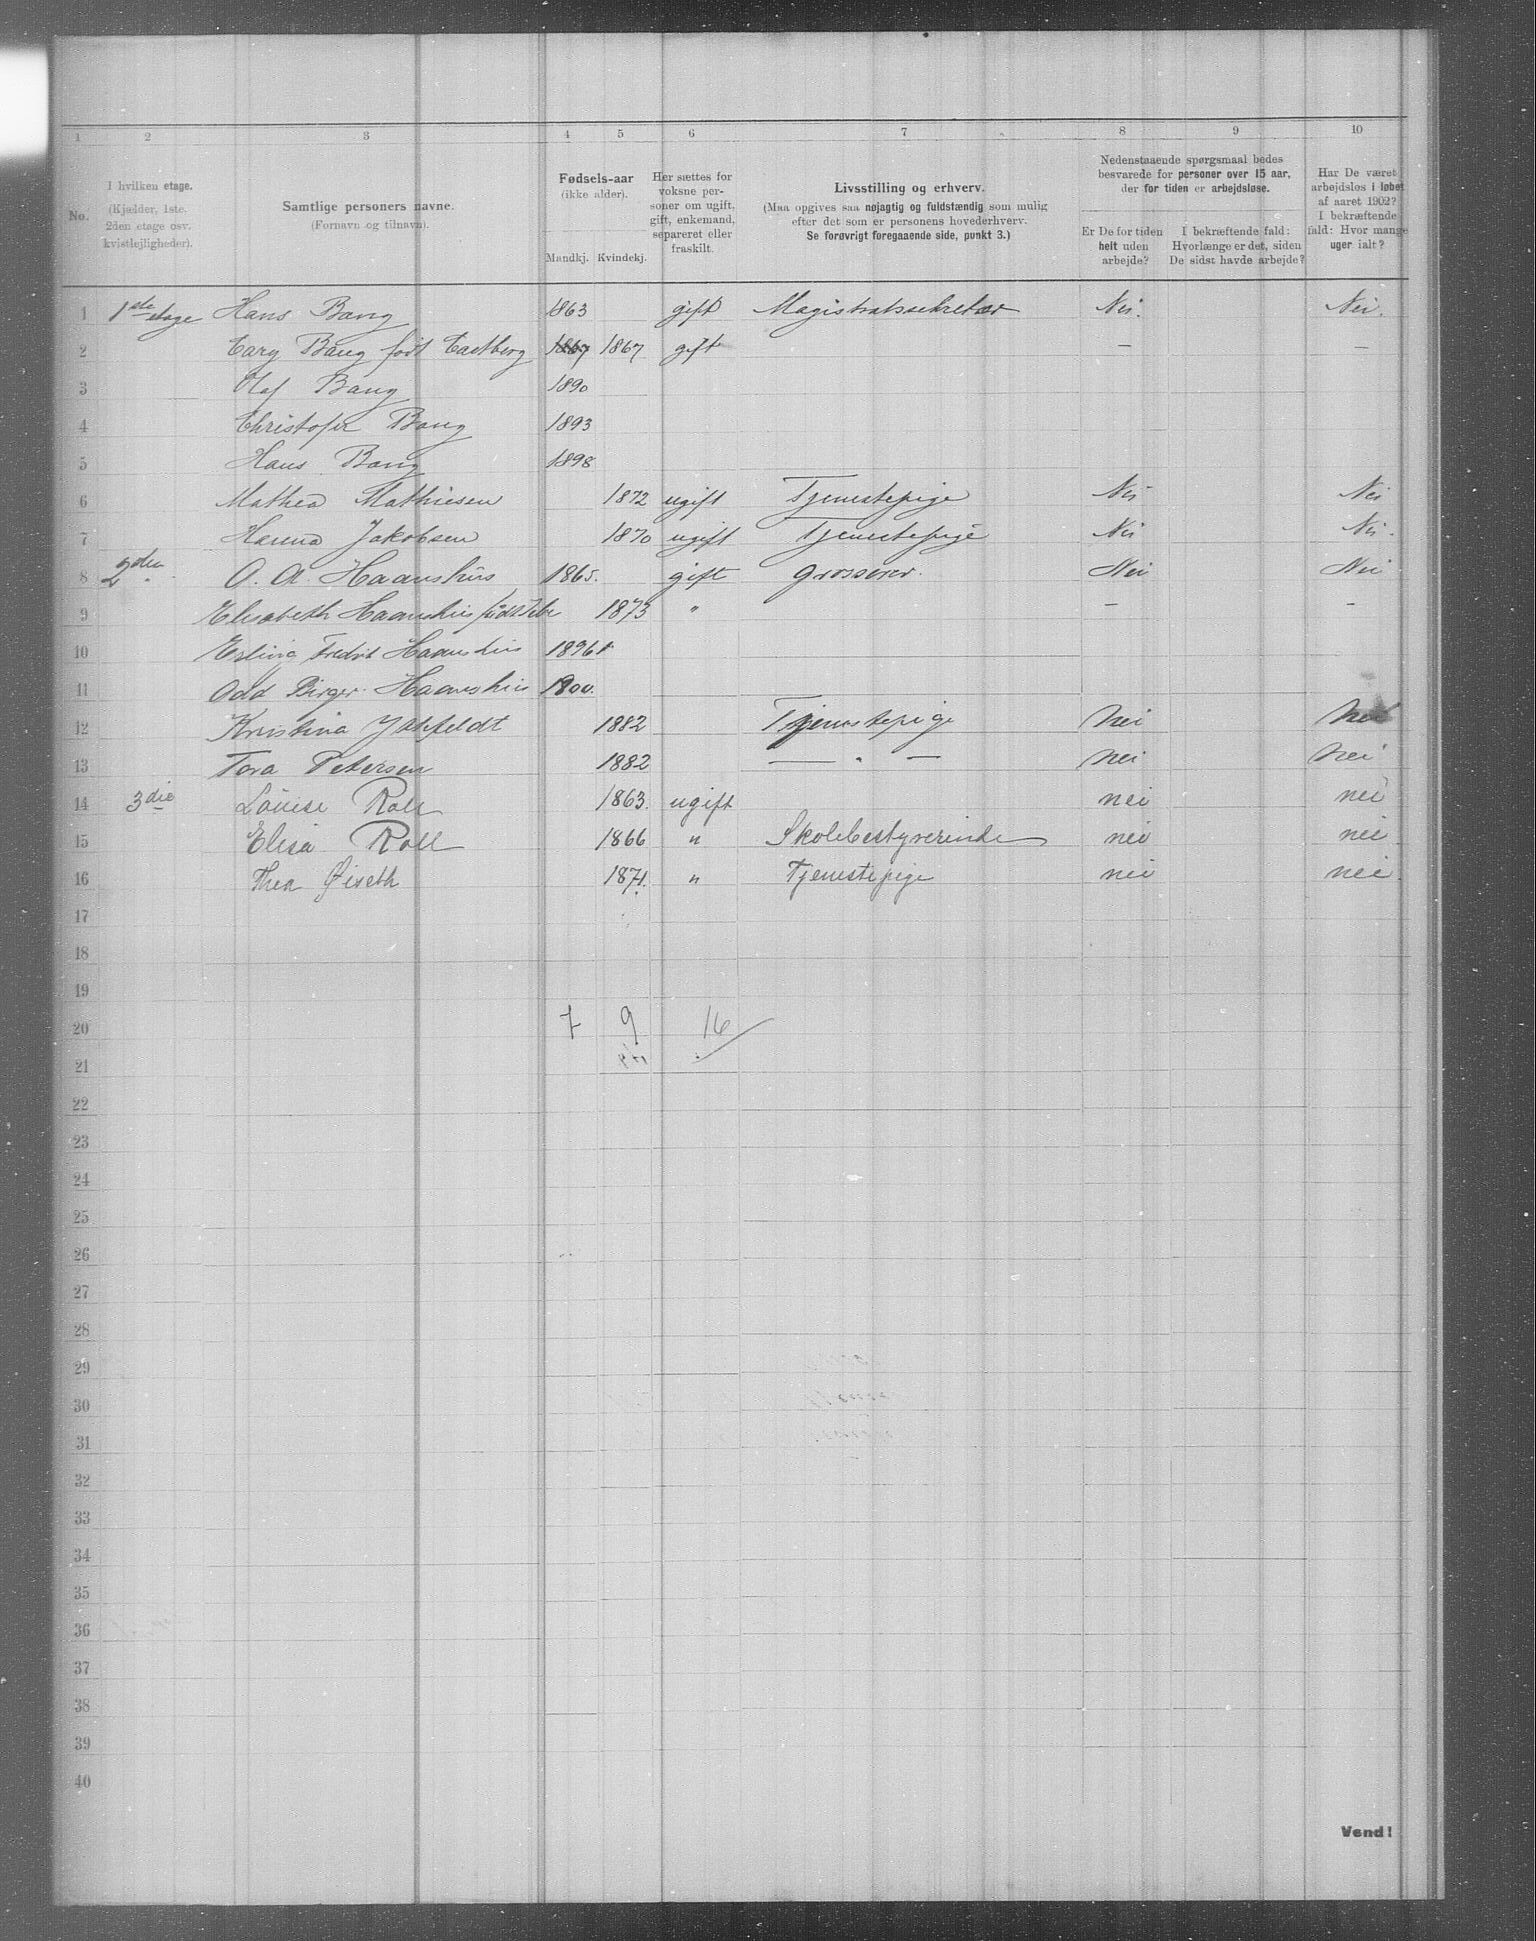 1 2 3 4 5 6 7 8 9 10
No.
I hvilken etage.
(Kjælder, 1ste.
2den etage osv.
kvistlejligheder).
Samtlige personers navne.
(Fornavn og tilnavn).
Fødsels-aar
(ikke alder).
Mandkj. Kvindekj.
Her sættes for
voksne per-
soner om ugift,
gift, enkemand,
separeret eller
fraskilt.
Livsstilling og erhverv.
(Maa opgives saa nøjagtig og fuldstændig som mulig
efter det som er personens hovederhverv.
Se forøvrigt foregaaende side, punkt 3.)
Nedenstaaende spørgsmaal bedes
besvarede for personer over 15 aar,
der for tiden er arbejdsløse.
Er De for tiden
helt uden
arbejde?
I bekræftende fald:
Hvorlænge er det, siden
De sidst havde arbejde?
Har De været
arbejdsløs i løbet
af aaret 1902?
I bekræftende
fald: Hvor mange
uger ialt?
1 1ste etage Hans Bang 1863 gift Magistratssekretær Nei. Nei.
2 Bang født Castberg 1867 1867 gift — —
3 Olaf Bang 1890
4 Christofer Bang 1893
5 Hans Bang 1898
6 Mathea Mathiesen 1872 ugift Tjenestepige Nei Nei
7 Hanna Jakobsen 1870 ugift Tjenestepige Nei Nei.
8 2den " O. A. Haanshus 1865. gift Grosserer. Nei Nei
9 Elisabeth Haanshus født 1873 " — —
10 Erling Fredrik Haanshus 1896
11 Odd Birger Haanshus 1900.
12 Kristina 1882 Tjenestepige Nei Nei
13 Tora Petersen 1882 — " — nei nei
14 3die Louise Roll 1863. ugift nei nei
15 Elisa Roll 1866 " Skolebestyrerinde nei nei
16 Thea Øiseth 1871. " Tjenestepige nei nei
17
18
19
20 7 9 16
21
22
23
24
25
26
27
28
29
30
31
32
33
34
35
36
37
38
39
40
Vend!